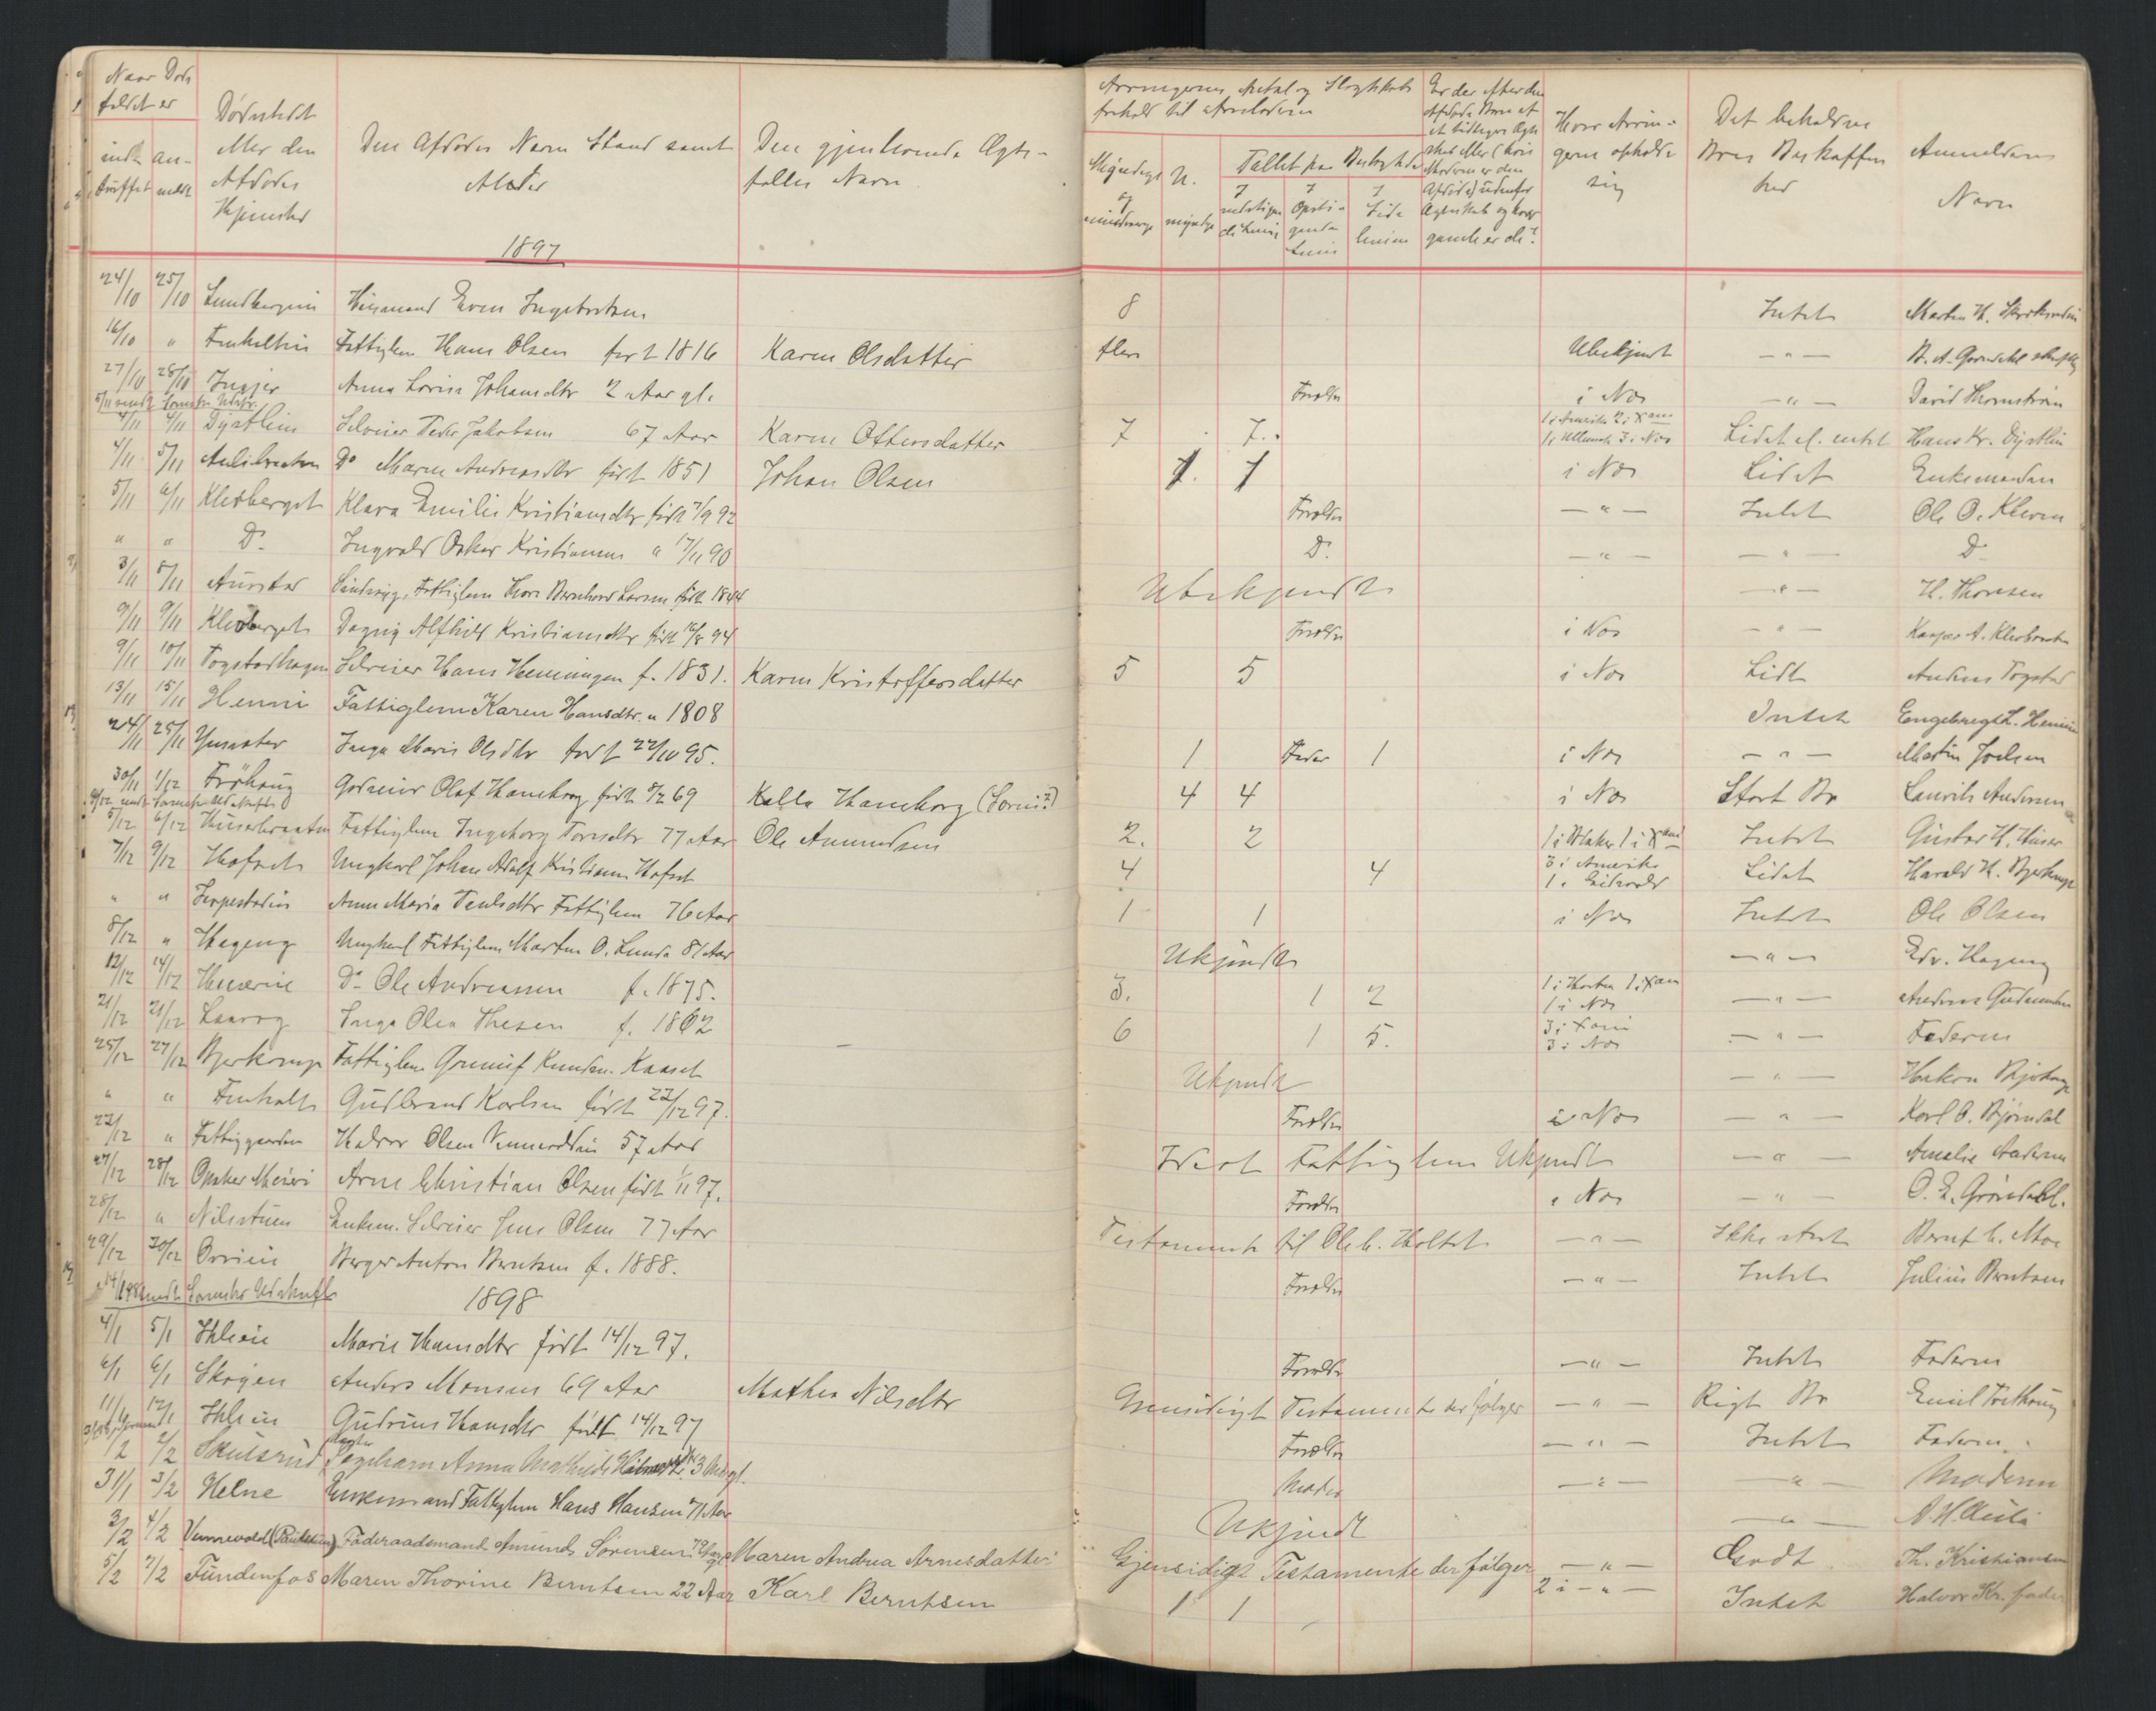 Naar Døds
faldet er
indtruffet
anmeldt
Dødsstedet
eller den
Afdødes
Hjemsted
Den Afdødes Navn Stand samt
Alder
Den gjenlevende Ægte-
fælles Navn
Arvingernes Antal og Slægtskabs
forhold til Arveladeren
Myndige
og
mindreaarige
U.
myndige
Tallet paa Beslægtede
I
nedstigende Linie
I
Opsti-
gende
Linie
I
Side
linien
Er der efter den
Afdøde Børn af
et tidligere Ægte
skab eller (hvis
Moderen er den
Afdøde) udenfor
Ægteskab og hvor
gamle er de?
Hvor Arvin-
gerne opholde
sig
Det beholdne
Boes Beskaffen
hed
Anmelderens
Navn
1897
24/10 25/10 Lundbergeie Husmand Even Ingebretsen 8 Intet Martin H.
16/10 " Finholtsie Fattiglem Hans Olsen født 1816 Karen Olsdatter flere Ubekjendt — " —
27/10 28/10 Ingjer Anna Lovise Johansdtr 2 Aar gl. Forældre i Nes — " — David Thornstrøm
4/11 4/11 Dystlin Selveier Peder Jakobsen 67 Aar Karen Ottersdatter 7 7. 1 i Amerika 2 i Xania 1 i Ullensak 3 i Nes Lidet el. intet Hans Kr. Dystlin
4/11 5/11 Aulibraaten Do Maren Andreasdtr født 1851 Johan Olsen 1. 1 i Nes Lidet Enkemanden
5/11 6/11 Kløvberget Klara Emilie Kristiansdtr født 7/9 92 Forældre — " — Intet Ole O. Kløven
" " Do Ingvald Oskar Kristiansen " 17/11 90 Do — " — — " — Do
3/11 8/11 Aurstad Sindssyg. Fattiglem Hans Bernhard Larsen født 1844 Ubekjendt — " — H. Thoresen
9/11 9/11 Kløvberget Dagny Alfhild Kristiansdtr født 16/8 94 Forældre i Nes — " — Kasper A. Kløvbraaten
9/11 10/11 Togstadhagen Selveier Hans Henningsen f. 1831. Karen Kristoffersdatter 5 5 i Nes Lidt Anders Togstad
13/11 15/11 Henni Fattiglem Karen Hansdtr. " 1808 Intet Engebregt L. Henni
24/11 25/11 Inga Marie Olsdtr født 22/10 95. 1 Fader 1 i Nes — " — Martin Joelsen
30/11 1/12 Frøhaug Gaardeier Olaf Haneborg født 8/2 69 Kalla Haneborg 4 4 i Nes Stort Bo Laurits Andersen
5/12 6/12 Huserbraaten Fattiglem Ingeborg Toresdtr 77 Aar Ole Amundsen 2. 2 1 i Blaker 1 i Xania Intet Gustav H. Huser
7/12 9/12 Hofset Ungkarl Johan Adolf Kristiansen Hofset 4 4 3 i Amerika 1 i Eidsvold Lidet Harald H.
" " Anne Marie Paulsdtr Fattiglem 76 Aar 1 1 i Nes Intet Ole Olsen
8/12 " Hageng Ungkarl Fattiglem Martin O. Lunde 81 Aar Ukjendt — " — Edv. Hageng
12/12 14/12 Huserie Do Ole Andreassen f. 1875. 3. 1 2 1 i Horten 1 i Xania 1 i Nes — " — Andreas Gudmundsen
21/12 21/12 Laavog Inga Olea Thesen f. 1862 6 1 5. 3 i Xania 3 i Nes — " — Faderen
25/12 27/12 Bjerkenge Fattiglem Knudsen. Kaaset Ukjendt — " — Haakon
" " Finholt Gudbrand Karlsen født 22/12 97. Forældre i Nes — " — Karl O. Bjørndal
22/12 " Fattiggaarden Halvor Olsen 57 Aar Fattiglem Ukjendt — " — Amalie
27/12 28/12 Opaker Meieri Arne Christian Olsen født 1/11 97. Forældre i Nes — " — O. E. Grøndahl.
28/12 " Nilsstuen Enkem. Selveier Jens Olsen 77 Aar Testamente til Ole H. Holtet — " — Ikke stort Bernt C. Moe
29/12 30/12 Birger Anton Berntsen f. 1888. Forældre — " — Intet Julius Berntsen
1898
4/1 5/1 Hleie Marie Hansdtr født 14/12 97. Forældre — " — Intet Faderen
6/1 6/1 Skogen Anders Monsen 69 Aar Mathea Nilsdtr Gjensidigt Testamente der følger — " — Rigt Bo Emil
11/1 12/1 Hleie Gudrun Hansdtr født 14/12 97 Forældre — " — Intet Faderen.
1/2 2/2 Skulsrud Anna Mathilde 3 Mdr gl. Moder — " — — " — Moderen
31/1 3/2 Helne Enkemand Fattiglem Hans Hansen 71 Aar Ukjendt — " —
3/2 4/2 Vennevold Føderaadsmand Amund Sørensen 79 Aar Maren Andrea Arnesdatter Gjensidigt Testamente der følger — " — Godt Th. Kristiansen
5/2 7/2 Fundenfos Maren Thorine Berntsen 22 Aar Karl Berntsen 1 1 2 i — " — Intet Halvor Kr. fader